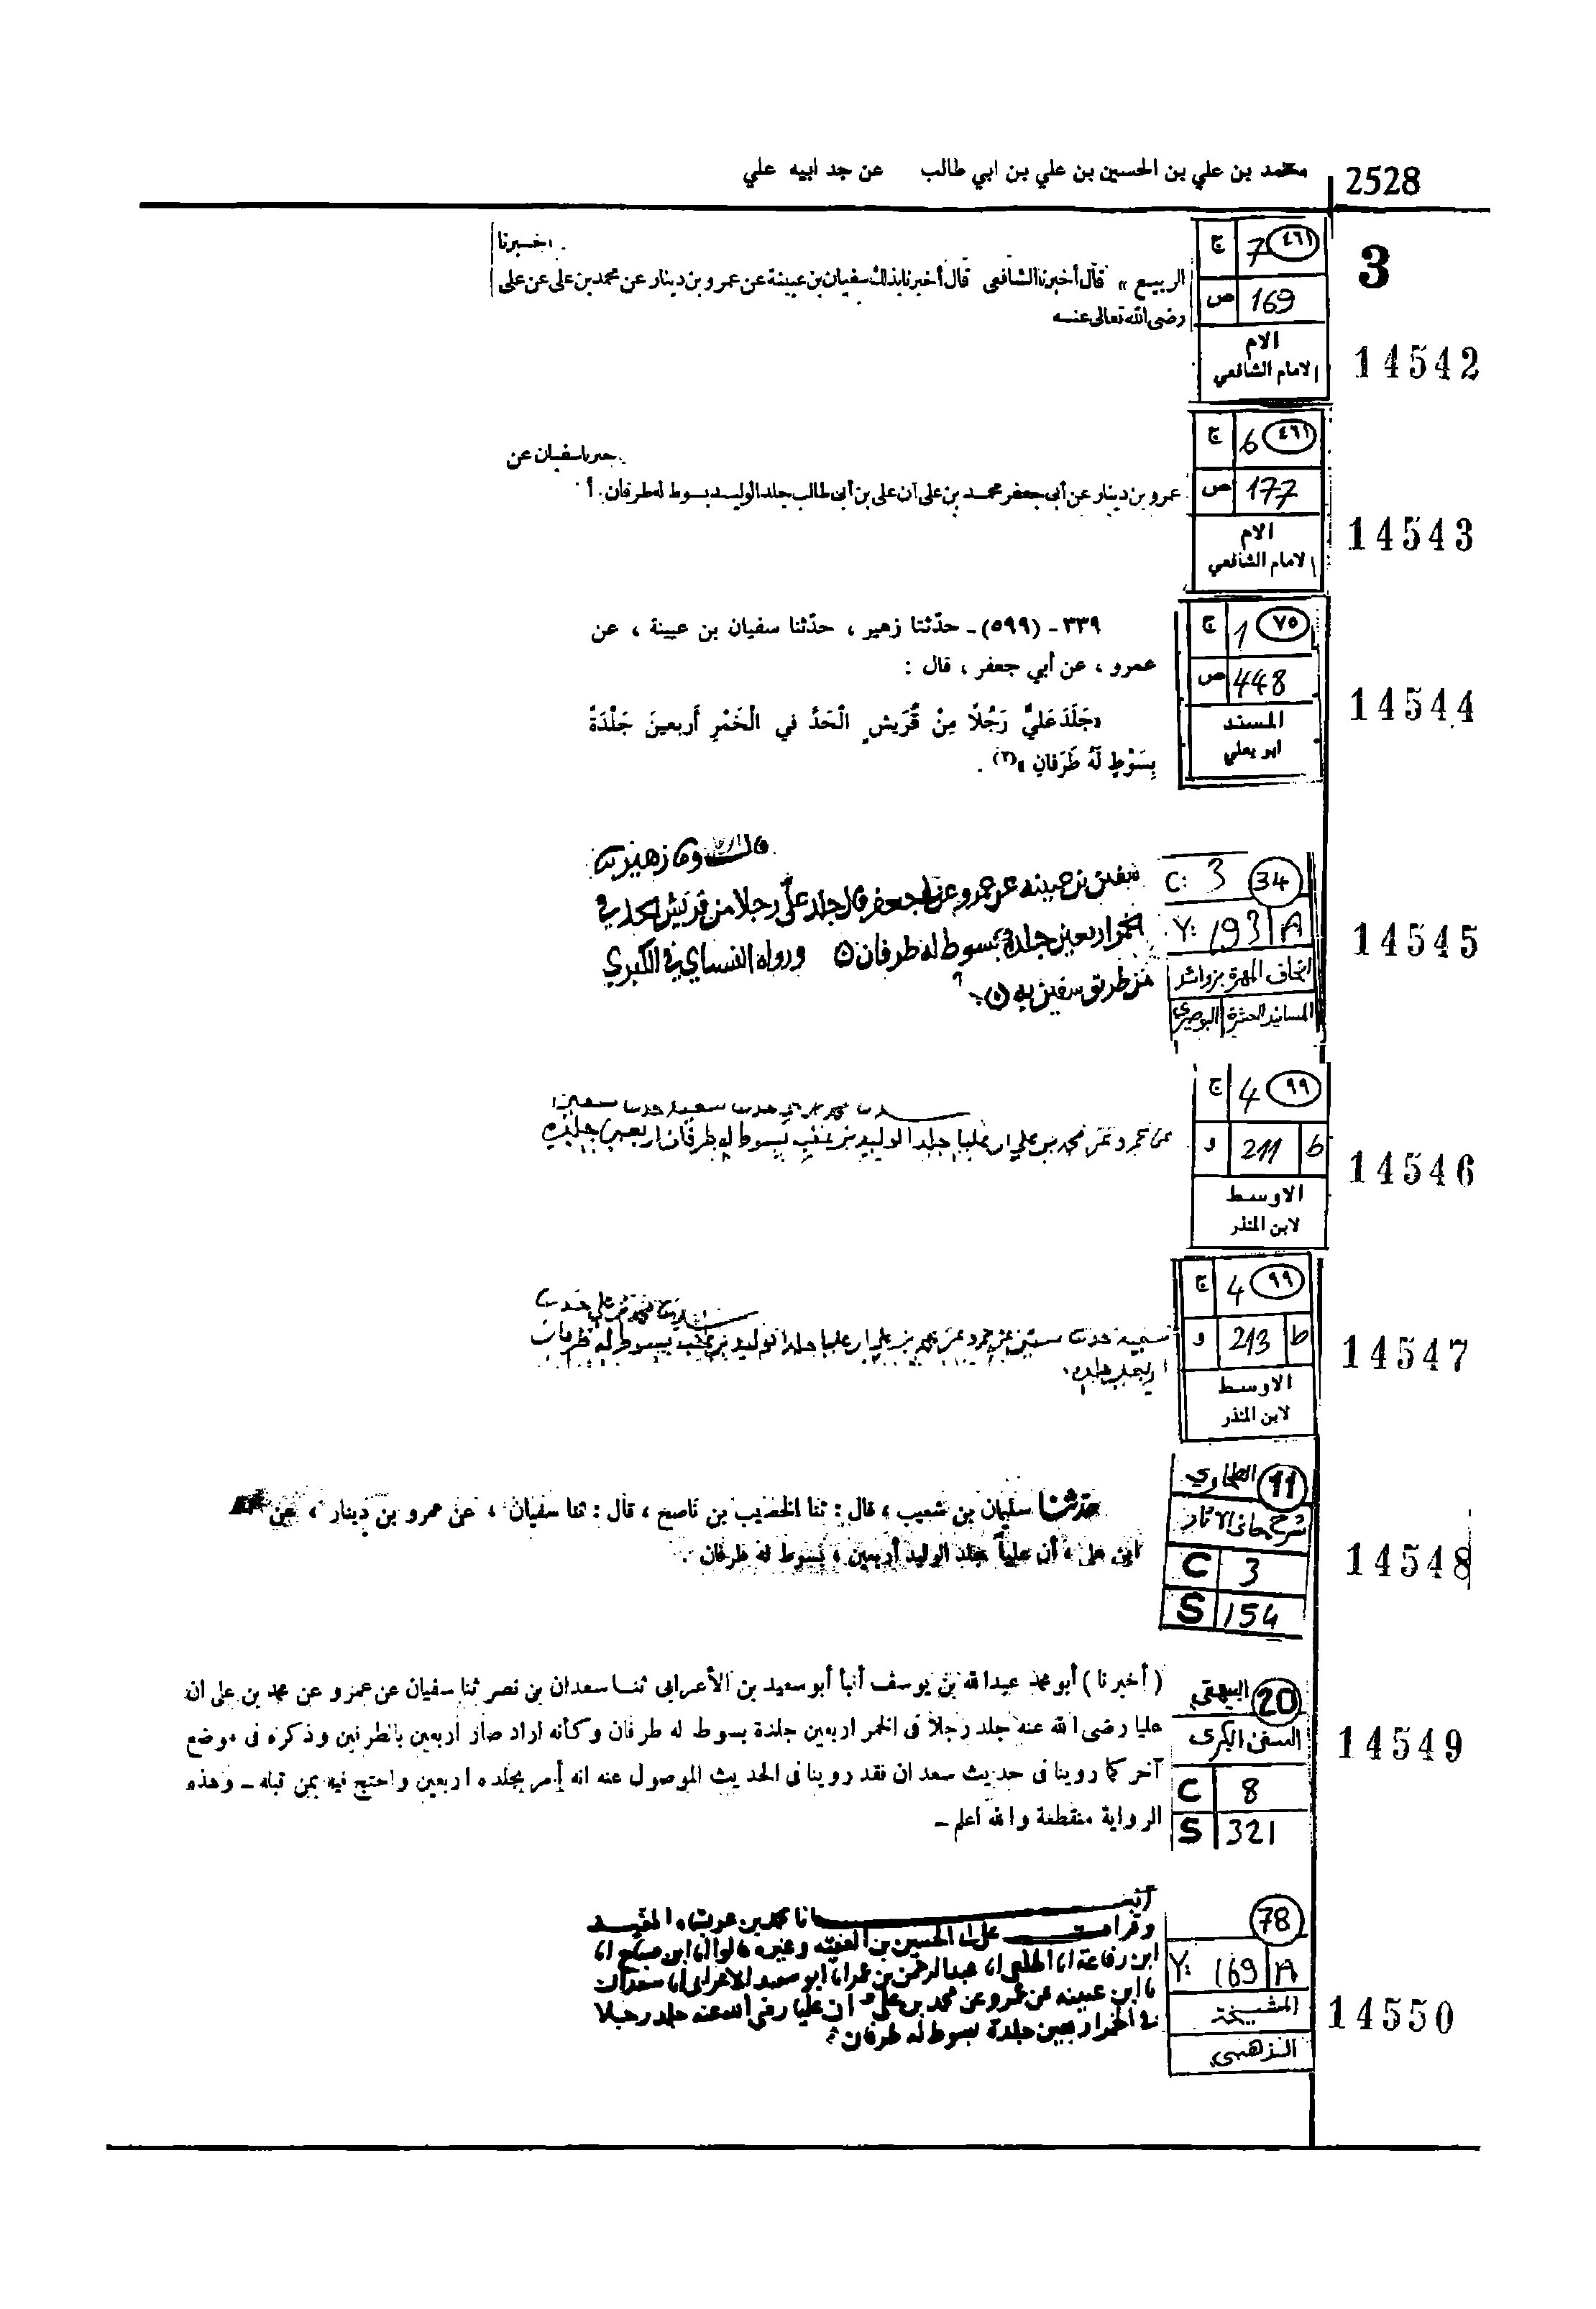 2528
محمد بن علي بن الحسين بن علي بن ابي طالب عن جد ابيه علي
3
ج 7 ٤٦١
ص 169
الام
الامام الشافعي
14542
اخبرنا
الربيع » قال أخبرنا الشافعى قال أخبرنا بذلك سفيان بن عيينة عن عمرو بن دينار عن محمد بن على عن على
رضى الله تعالى عنه
ج 6 ٤٦١
ص 177
الام
الامام الشافعي
14543
سفيان عن
عمرو بن دينار عن أبى جعفر محمد بن على أن على بن أبى طالب جلد الوليد بسوط له طرفان . أ
ج 1 ٧٥
ص 448
المسند
ابو يعلي
14544
٣٣٩ - (٥٩٩) - حدّثنا زهير ، حدّثنا سفيان بن عيينة ، عن
عمرو ، عن أبي جعفر ، قال :
«جَلَدَ عَليٌّ رَجُلًا مِنْ قُرَيشٍ الْحَدَّ في الْخَمْرِ أَربعينَ جَلْدَةً
بِسَوْطٍ لَهُ طَرَفانِ »(٢) .
C: 3 34
Y: 193 A
اتحاف المهرة بزوائد
المسانيد العشرة البوصيري
14545
زهير
سفين بن عيينه عن عمرو عن ابي جعفر قال جلد علي رجلا من قريش الحد في
الخمر اربعين جلدة بسوط له طرفان ورواه النساي في الكبري
من طريق سفين به
ج 4 ٩٩
و 211 ط
الاوسط
لابن المنذر
14546
عن عمرو عن محمد بن علي ان عليا جلد الوليد بن عقبه بسوط له طرفان اربعين جلده
ج 4 ٩٩
و 213 ط
الاوسط
لابن المنذر
14547
عن عمرو عن محمد بن علي ان عليا جلد الوليد بن عقبه بسوط له طرفان
اربعين جلده
الطحاوي 11
شرح معاني الاثار
C 3
S 154
14548
حدثنا سليمان بن شعيب ، قال : ثنا الخصيب بن ناصح ، قال : ثنا سفيان ، عن عمرو بن دينار ، عن
ابن على ، أن علياً جلد الوليد أربعين ، بسوط له طرفان .
البيهقي 20
السنن الكبرى
C 8
S 321
14549
( أخبرنا ) أبو محمد عبدالله بن يوسف أنبأ أبو سعيد بن الأعرابى ثنا سعدان بن نصر ثنا سفيان عن عمرو عن محمد بن على ان
عليا رضى الله عنه جلد رجلا فى الخمر اربعين جلدة بسوط له طرفان وكأنه اراد صار أربعين بالطرفين وذكره فى موضع
آخر كما روينا فى حديث سعدان فقد روينا فى الحديث الموصول عنه انه أمر بجلده اربعين واحتج فيه بمن قبله - وهذه
الرواية منقطعة والله اعلم -
78
Y: 169 A
المشيخة
الذهبي
14550
وقرات على الحسين بن الفقيه وغيره قالوا انا ابن صباح انا
ابن رفاعة انا الخلعي انا عبدالرحمن بن عمر انا ابو سعيد الاعرابي انا سعدان
نا ابن عيينه عن عمرو عن محمد بن علي ان عليا رضي الله عنه جلد رجلا
في الخمر اربعين جلدة بسوط له طرفان